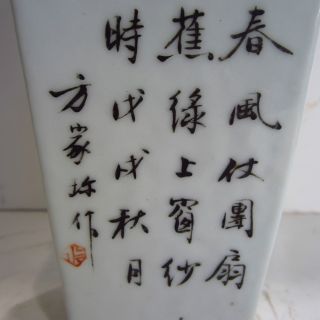 春風仗團扇
蕉綠上窗紗
時戊戌秋月
方家珍作